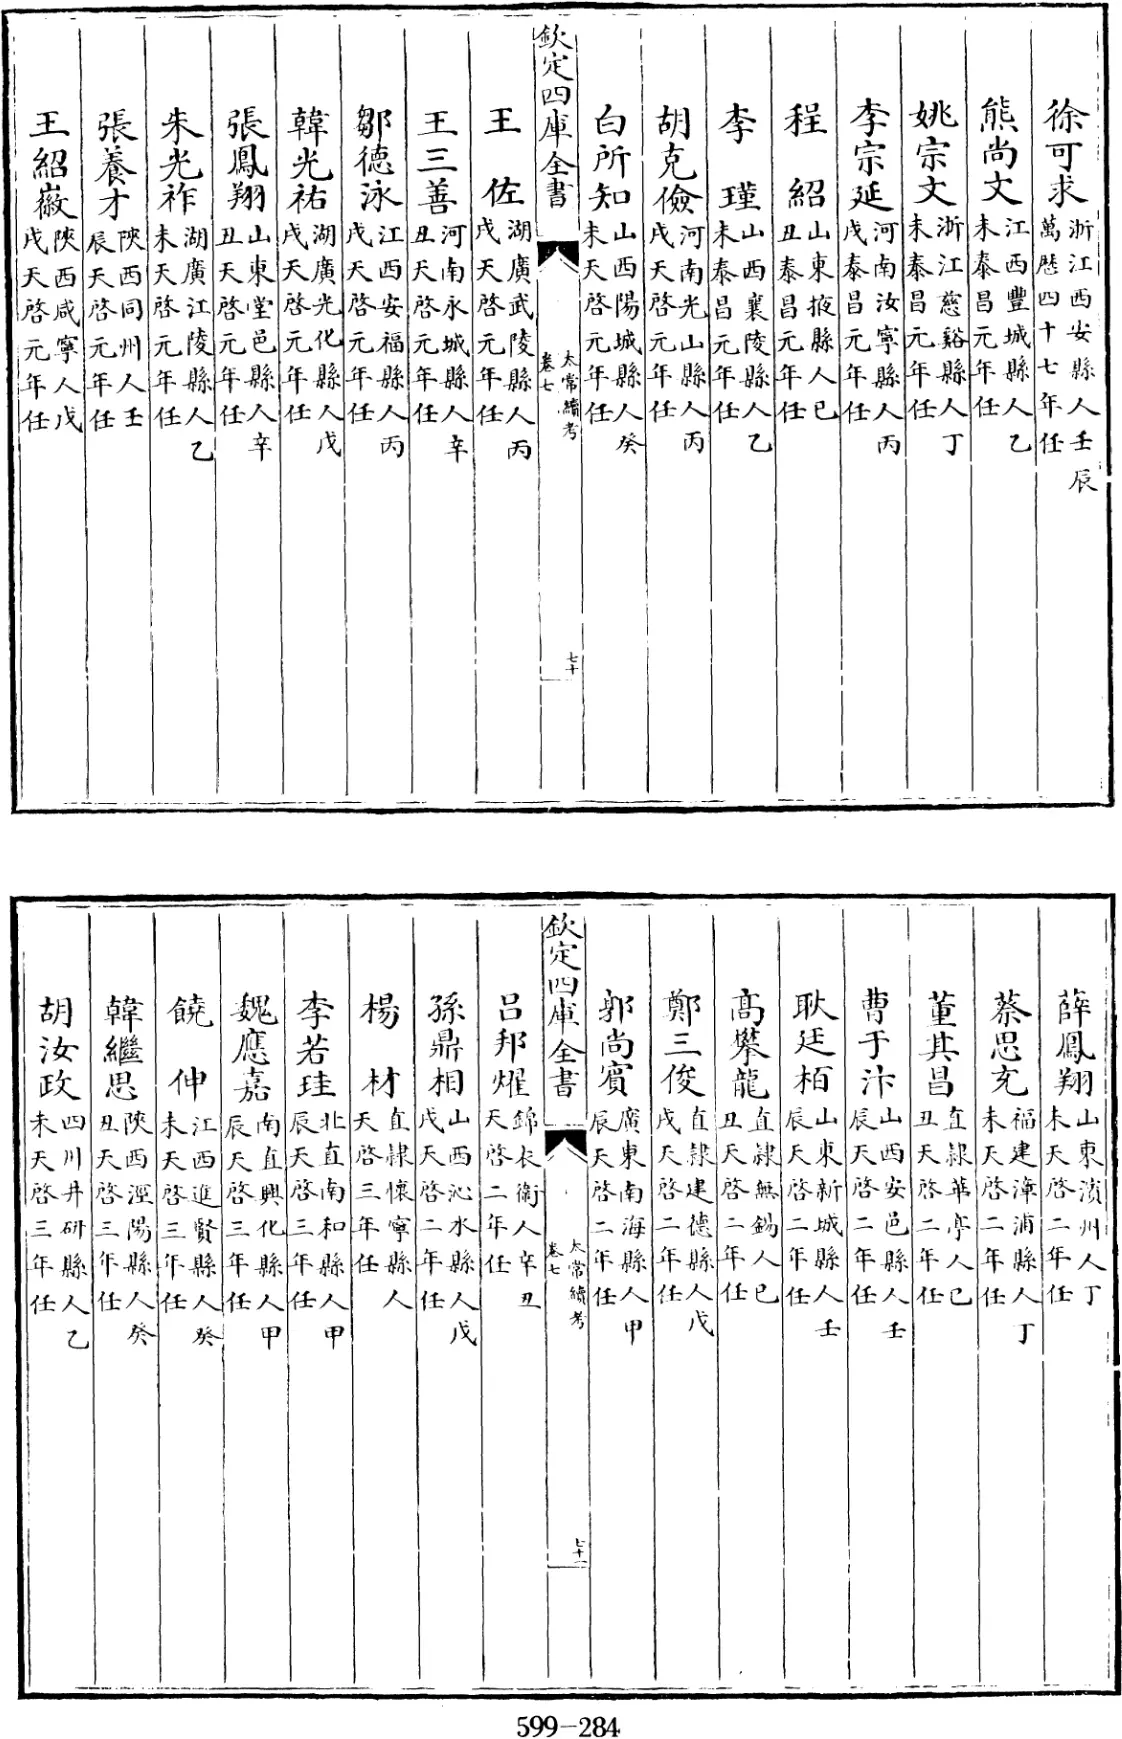 徐可求浙江西安縣人壬辰萬歷四十七年任
熊尚文江西豐城縣人乙未泰昌元年任
姚宗文浙江慈谿縣人丁未泰昌元年任
李宗延河南汝寧縣人丙戌泰昌元年任
程紹山東掖縣人己丑泰昌元年任
李瑾山西襄陵縣人乙未泰昌元年任
胡克儉河南光山縣人丙戌天啓元年任
白所知山西陽城縣人癸未天啓元年任
欽定四庫全書
太常續考
卷七
七十
王佐湖廣武陵縣人丙戌天啓元年任
王三善河南永城縣人辛丑天啓元年任
鄒德泳江西安福縣人丙戌天啓元年任
韓光祐湖廣光化縣人戊戌天啓元年任
張鳳翔山東堂邑縣人辛丑天啓元年任
朱光祚湖廣江陵縣人乙未天啓元年任
張養才陝西同州人壬辰天啓元年任
王紹徽陝西咸寧人戊戌天啓元年任
薛鳳翔山東濱州人丁未天啓二年任
蔡思充福建漳浦縣人丁未天啓二年任
董其昌直隸華亭人己丑天啓二年任
曹于汴山西安邑縣人壬辰天啓二年任
耿廷栢山東新城縣人壬辰天啓二年任
高攀龍直隸無錫人己丑天啓二年任
鄭三俊直隸建德縣人戊戌天啓二年任
郭尚賓廣東南海縣人甲辰天啓二年任
欽定四庫全書
太常續考
卷七
七十一
呂邦燿錦衣衛人辛丑天啓二年任
孫鼎相山西沁水縣人戊戌天啓二年任
楊材直隸懷寧縣人天啓三年任
李若珪北直南和縣人甲辰天啓三年任
魏應嘉南直興化縣人甲辰天啓三年任
饒伸江西進賢縣人癸未天啓三年任
韓繼思陝西涇陽縣人癸丑天啓三年任
胡汝政四川井研縣人乙未天啓三年任
599-284